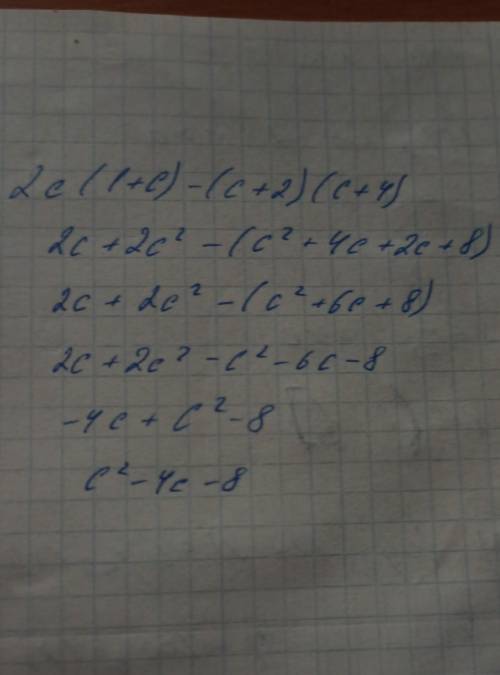 2c(1+c)-(c+2)(c+4)
2c+2c²-(c²+4c+2c+8)
2c+2c²-(c²+6c+8)
2c+2c²-c²-6c-8
-4c+c²-8
c²-4c-8